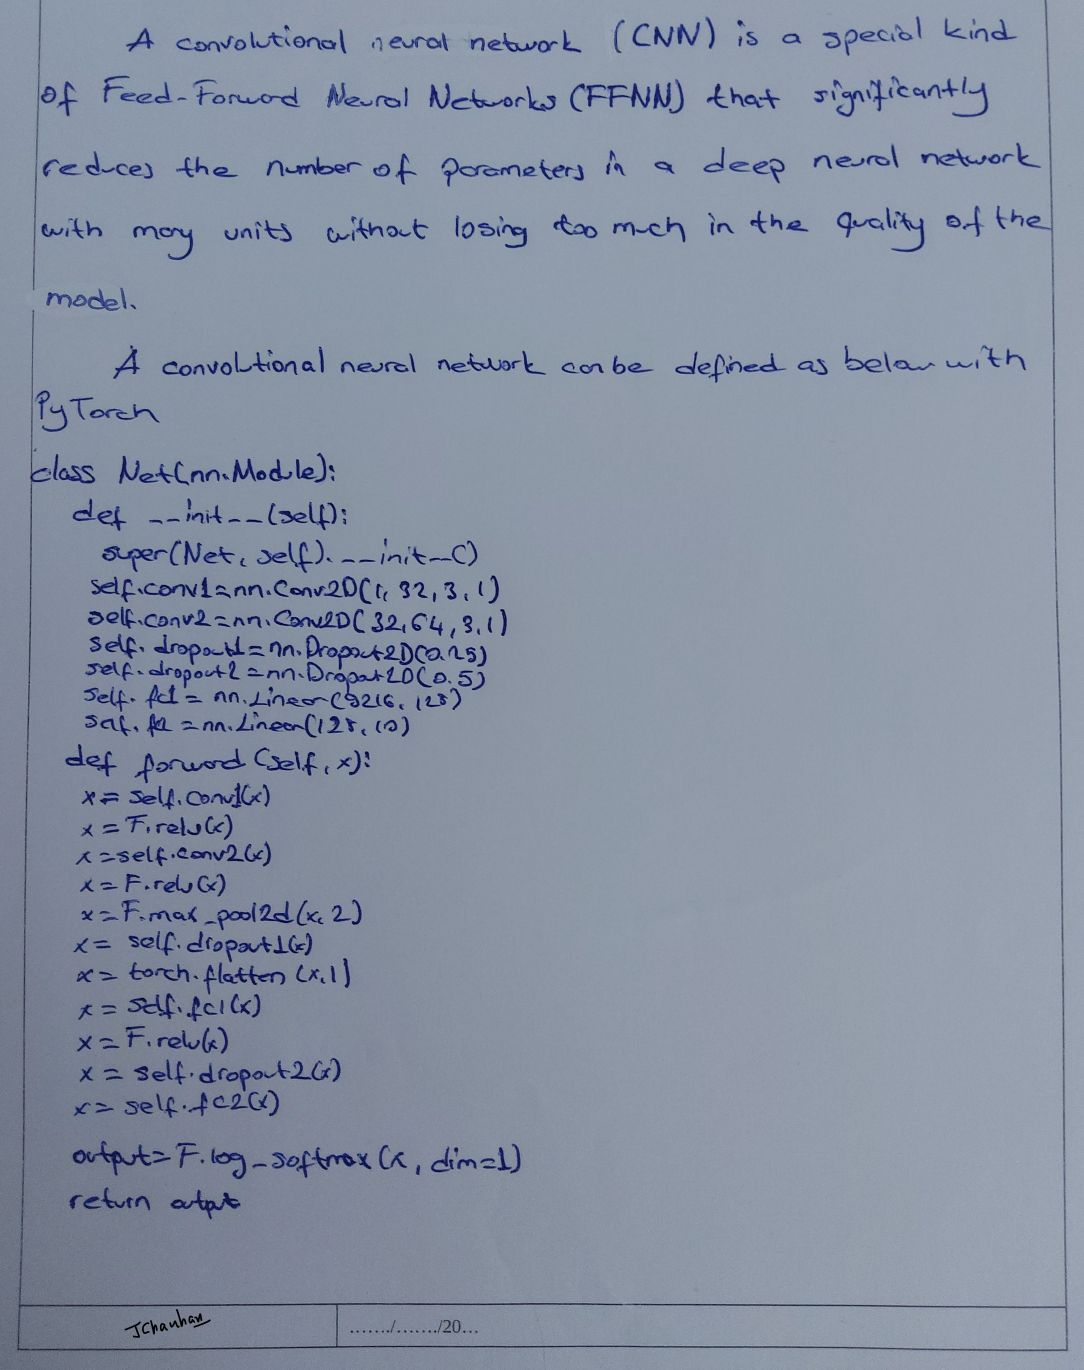 A convolutional neural network (CNN) is a special kind
of Feed-Forward Neural Networks (FFNN) that significantly
reduces the number of parameters in a deep neural network
with many units without losing too much in the quality of the
model.
A convolutional neural network can be defined as below with
PyTorch
class Net(nn.Module):
def __init__(self):
super(Net, self).__init__()
self.conv1=nn.Conv2D(1, 32, 3, 1)
self.conv2=nn.Conv2D(32, 64, 3, 1)
self.dropout1=nn.Dropout2D(0.25)
self.dropout2=nn.Dropout2D(0.5)
self.fc1=nn.Linear(9216, 128)
self.fc2=nn.Linear(128, 10)
def forward(self, x):
x=self.conv1(x)
x=F.relu(x)
x=self.conv2(x)
x=F.relu(x)
x=F.max_pool2d(x, 2)
x=self.dropout1(x)
x=torch.flatten(x, 1)
x=self.fc1(x)
x=F.relu(x)
x=self.dropout2(x)
x=self.fc2(x)
output=F.log_softmax(x, dim=1)
return output
JChauhan ......./......./20...